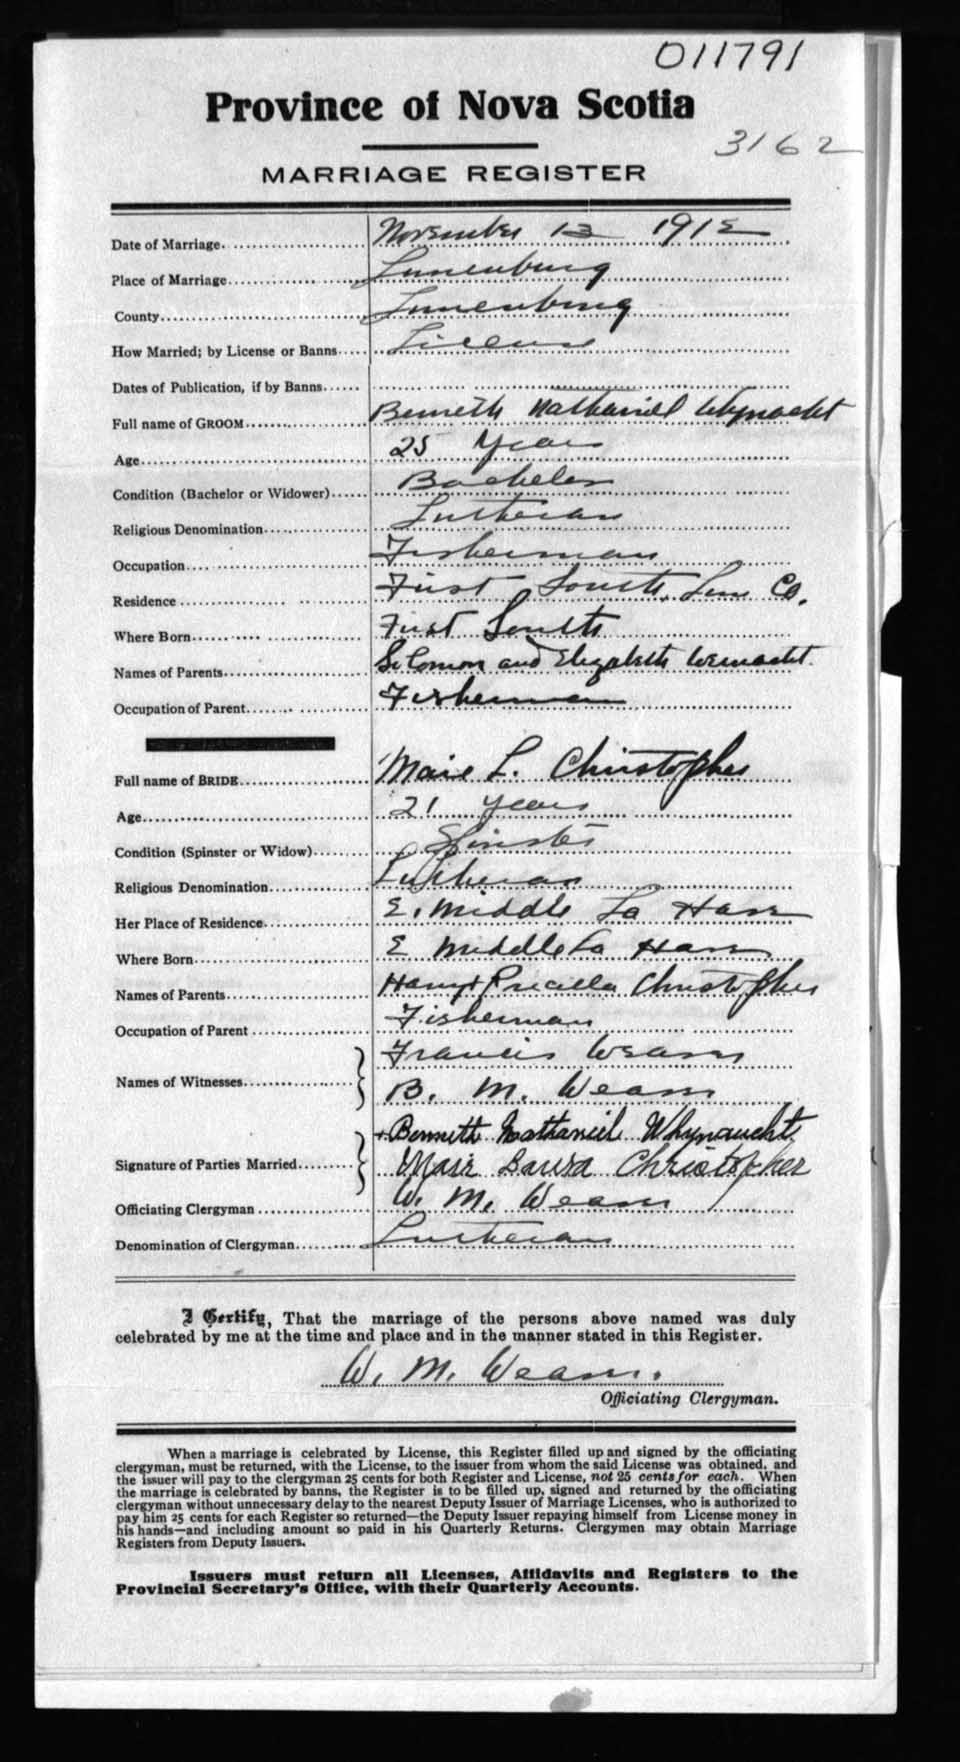 011791
Province of Nova Scotia
3162
MARRIAGE REGISTER
Date of Marriage November 13 1912
Place of Marriage Lunenburg
County Lunenburg
How Married; by License or Banns License
Dates of Publication, if by Banns
Full name of GROOM Benneth Nathaniel Whynacht
Age 25 Years
Condition (Bachelor or Widower) Bachelor
Religious Denomination Lutheran
Occupation Fisherman
Residence First South Lun Co.
Where Born First South
Names of Parents Solomon and Elizabeth Weinacht
Occupation of Parent Fisherman
Full name of BRIDE Marie L. Christopher
Age 21 years
Condition (Spinster or Widow) Spinster
Religious Denomination Lutheran
Her Place of Residence E. Middle La Have
Where Born E Middle La Have
Names of Parents Harry + Precilla Christopher
Occupation of Parent Fisherman
Francis Weams
Names of Witnesses
B. M. Weams
+ Bennett Nathaniel Whynaucht
Signature of Parties Married Christopher
Officiating Clergyman W. M. Weams
Denomination of Clergyman Lutheran
I Certify, That the marriage of the persons above named was duly
celebrated by me at the time and place and in the manner stated in this Register.
W. M. Weams.
Officiating Clergyman.
When a marriage is celebrated by License, this Register filled up and signed by the officiating
clergyman, must be returned, with the License, to the issuer from whom the said License was obtained, and
the issuer will pay to the clergyman 25 cents for both Register and License, not 25 cents for each. When
the marriage is celebrated by banns, the Register is to be filled up, signed and returned by the officiating
clergyman without unnecessary delay to the nearest Deputy Issuer of Marriage Licenses, who is authorized to
pay him 25 cents for each Register so returned—the Deputy Issuer repaying himself from License money in
his hands—and including amount so paid in his Quarterly Returns. Clergymen may obtain Marriage
Registers from Deputy Issuers.
Issuers must return all Licenses, Affidavits and Registers to the
Provincial Secretary's Office, with their Quarterly Accounts.